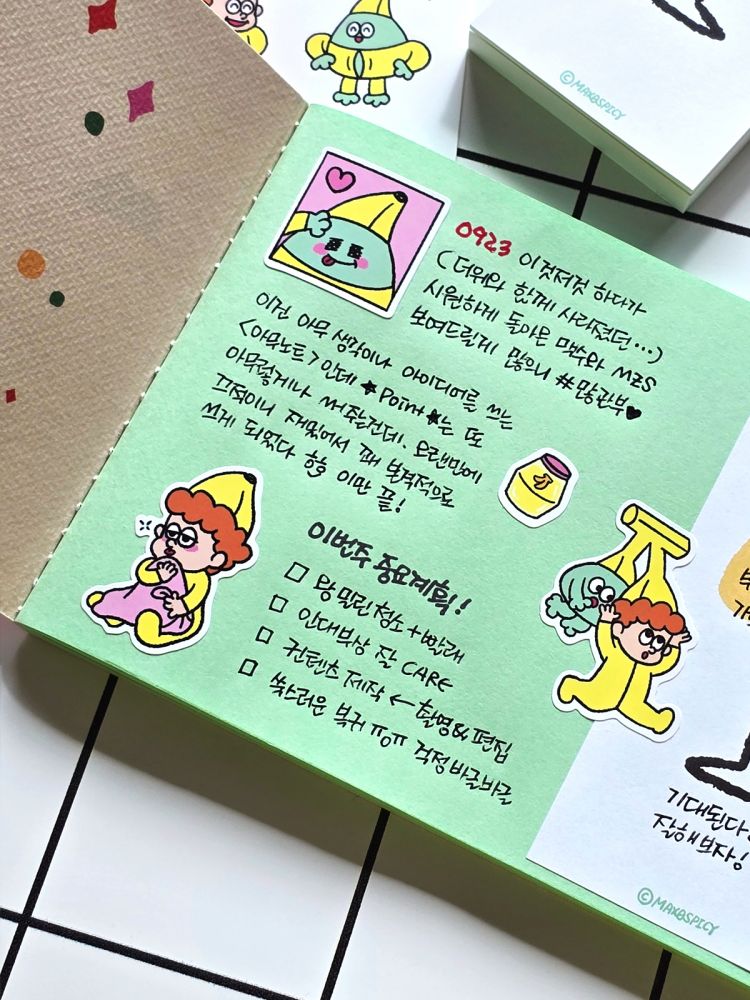 ©MAXBSPICY
0923 이것저것 하다가
(더위와 함께 사라졌던...)
시원하게 돌아온 맥수와 MZS
보여드릴게 많으니 #많관부♥
이건 아무 생각이나 아이디어를 쓰는
<아무노트> 인데 ★Point★는 또
아무렇게나 써줘야하는건데. 오랜만에
끄적이니 재밌어서 꽤 본격적으로
쓰게 되었다 핳 이만 끝!
이번주 중요계획!
□ 왕 밀린 청소 + 빨래
□ 인대부상 잘 CARE
□ 컨텐츠 제작 ← 촬영&편집
□ 쑥스러운 복귀 ㅠoㅠ 걱정바글바글
기대된다
잘해보자!
©MAXBSPICY